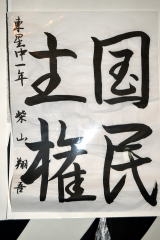 国民
主権
東星中一年 柴山翔吾